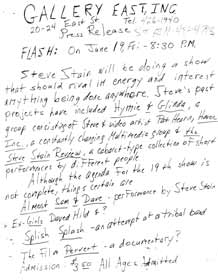 GALLERY EAST, ING
20-24 East St. Tel. 426-1940
Press Release
FLASH: On June 19 Fri. - 8:30 P.M.
Steve Stain will be doing a show
that should rival in energy and interest
anything being done anywhere. Steve's past
projects have included Hymie & Glinda, a
group consisting of Steve & video artist Pat Hearn,
Inc., a constantly changing Multimedia group & the
Steve Stain Review, a cabaret-type collection of short
performances by different people
Although the agenda for the 19th show is
not complete, things certain are
Almost Sam & Dave - performance by Steve Stain
Ex-Girls David Hild &?
Splish Splash - an attempt at a tribal band
The Film Pervert - a documentary?
Admission - $3.50 All Ages Admitted